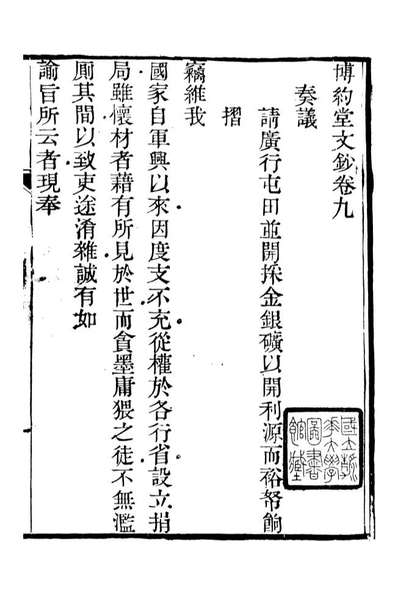 博約堂文鈔卷九
奏議
請廣行屯田並開採金銀礦以開利源而裕帑餉
摺
竊維我
國家自軍興以來因度支不充從權於各行省設立捐
局雖懷材者藉有所見於世而貪墨庸猥之徒不無濫
厠其間以致吏途淆雜誠有如
諭旨所云者現奉
國立北
平大學
圖書
館藏